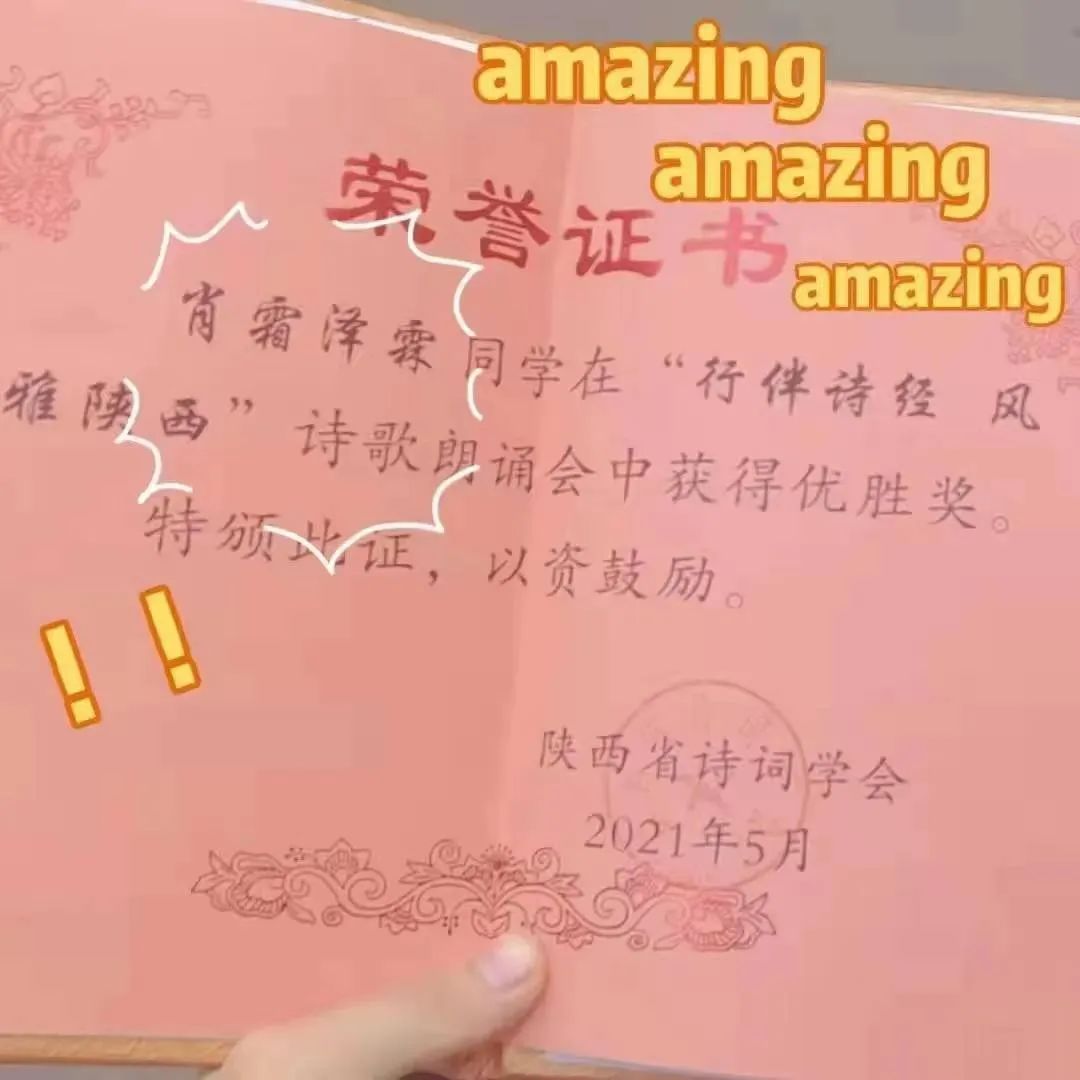 amazing
amazing
amazing
荣誉证书
肖霜泽霖同学在“行伴诗经 风
雅陕西”诗歌朗诵会中获得优胜奖。
特颁此证，以资鼓励。
!!
陕西省诗词学会
2021年5月